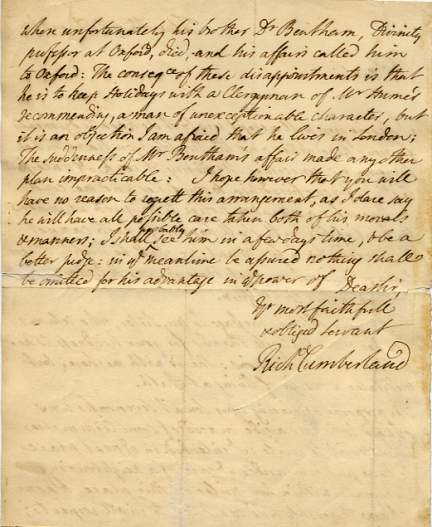 when unfortunately his brother Dr Bentham, Divinity
professor at Oxford, died, and his affairs called him
to Oxford: The conseqce of these disappointments is that
he is to keep Holidays with a Clergyman of Mr Hume's
recommending, a man of unexceptionable character, but
it is an objection I am afraid that he lives in London;
The suddenness of Mr Bentham's affair made any other
plan impracticable: I hope however that you will
have no reason to regrett this arrangement, as I dare say
he will have all possible care taken both of his morals
& manners; I shall probably see him in a few days time, & be a
better judge: in ye meantime be assured nothing shall
be omitted for his advantage in ye power of Dear Sir,
Yr most faithfull
& obliged servant
Richd Cumberland